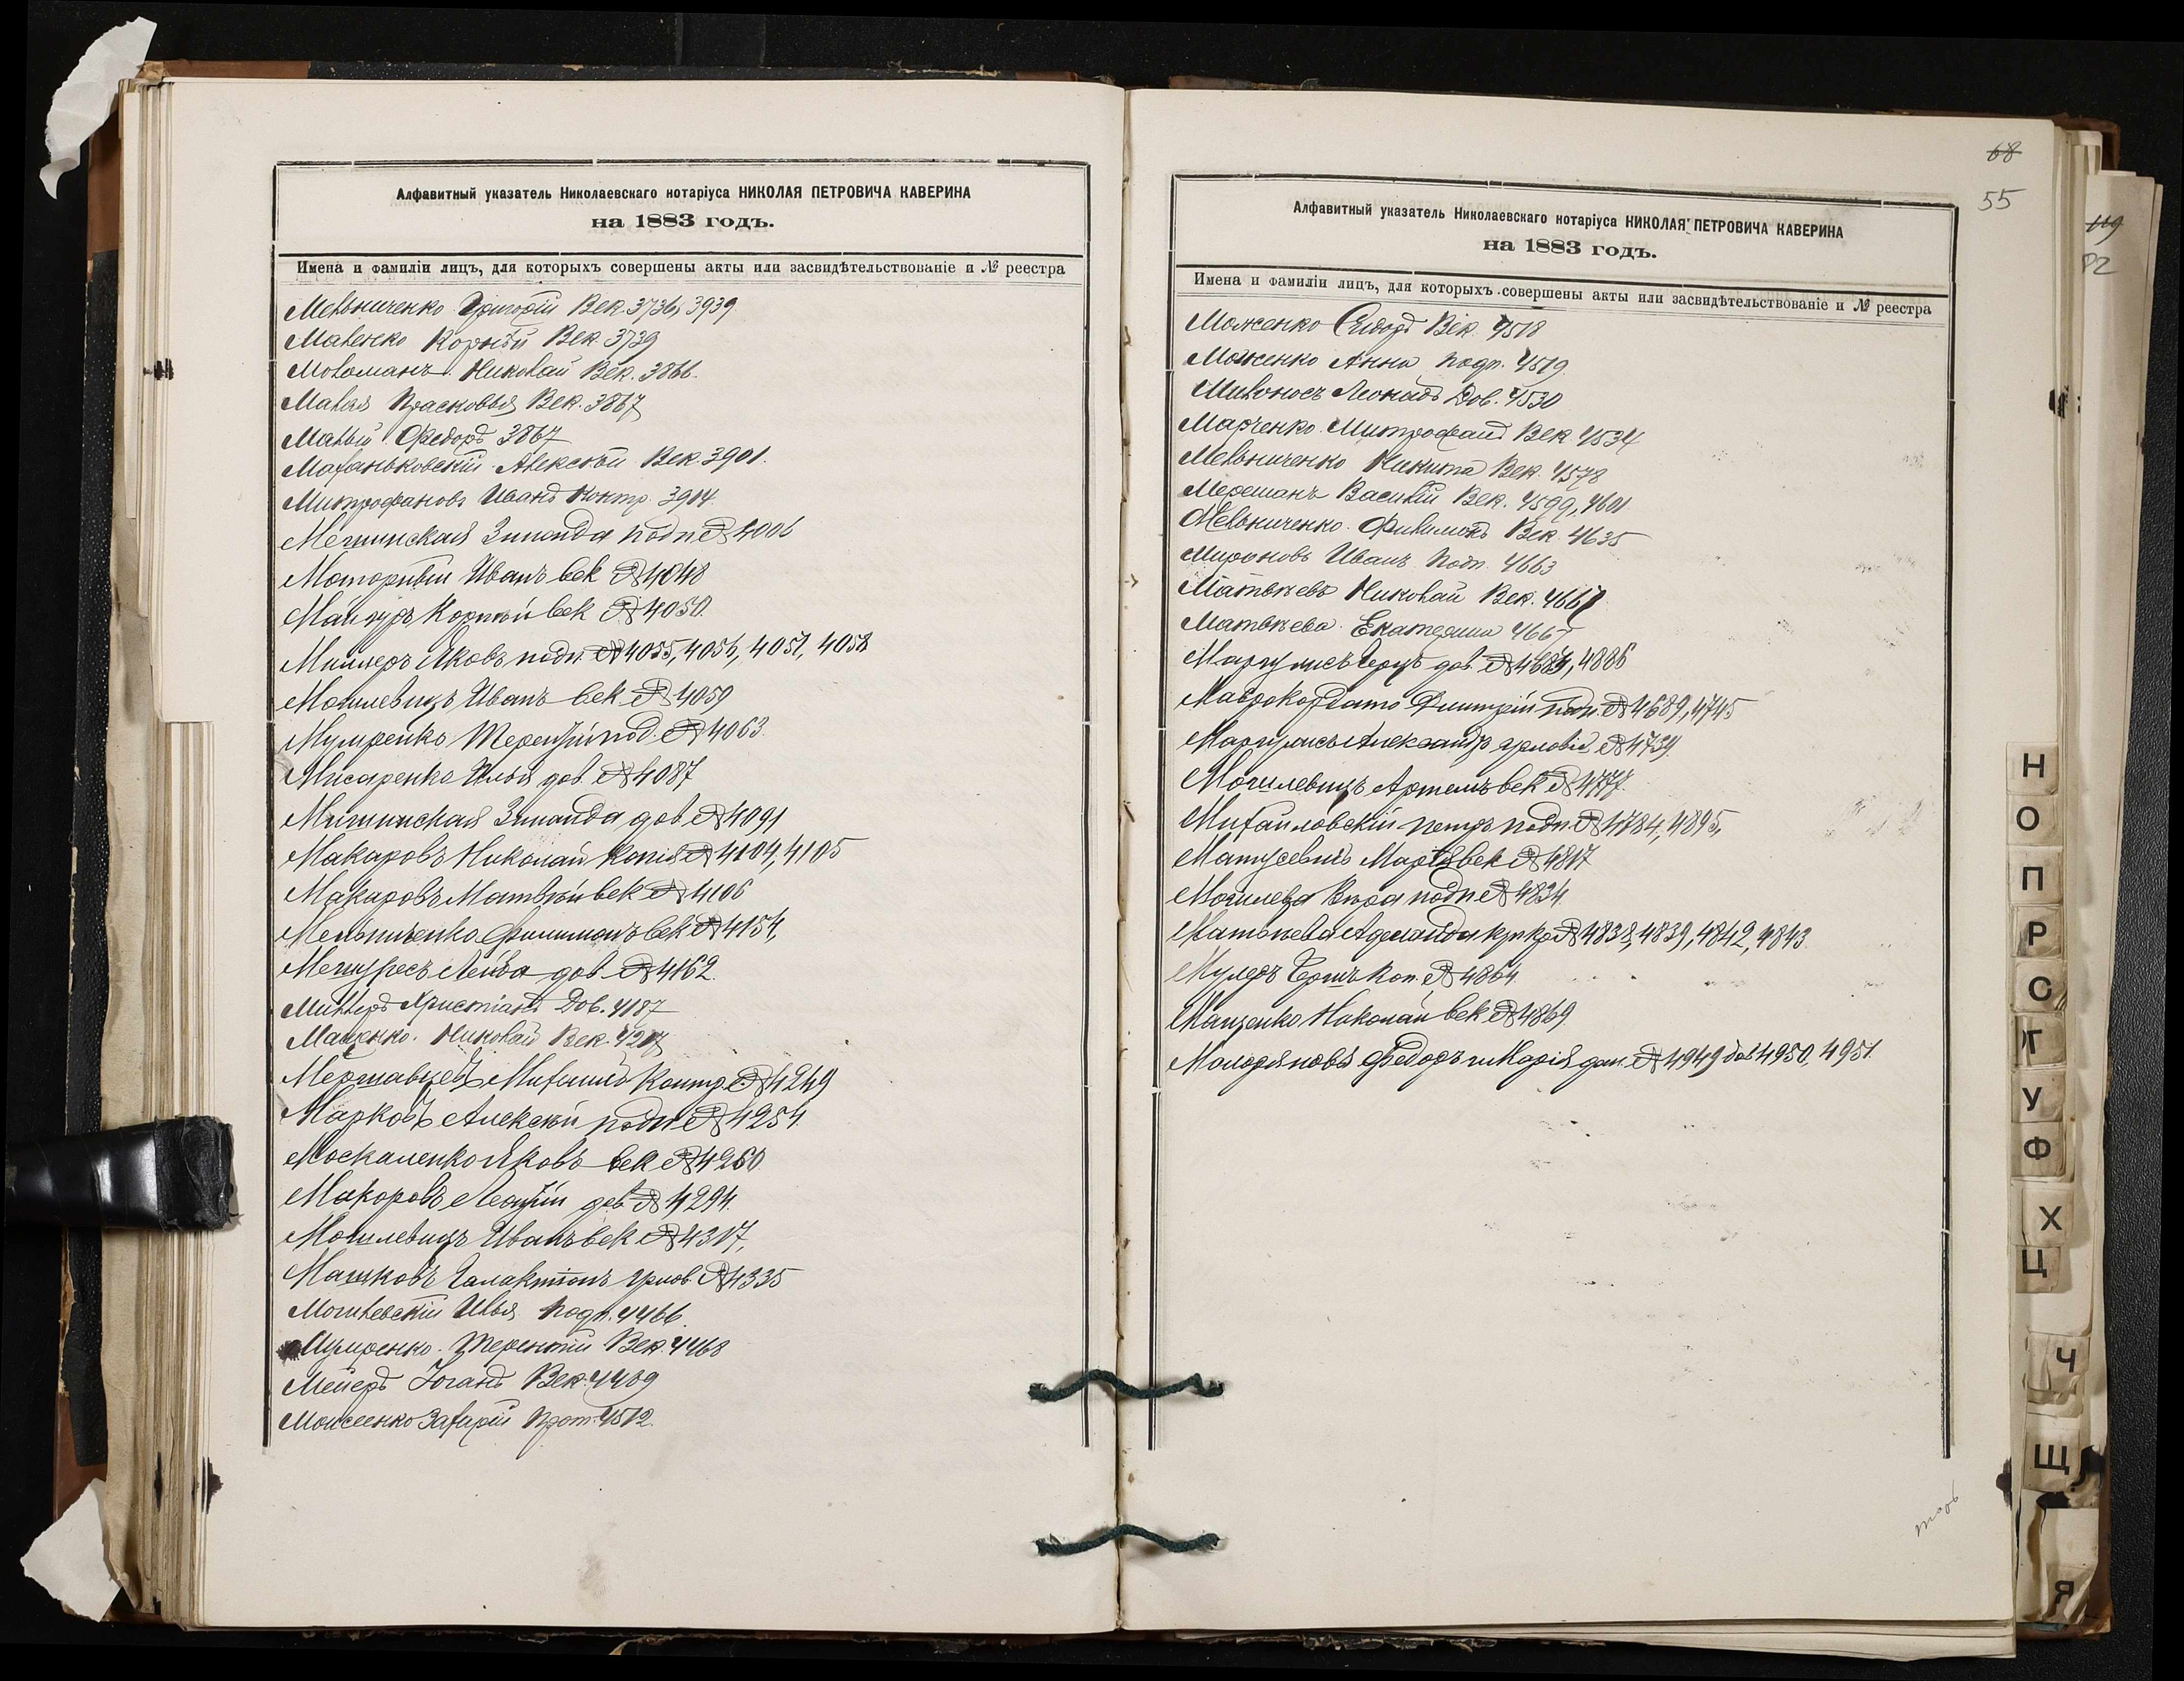 Алфавитный указатель Николаевскаго нотаріуса НИКОЛАЯ ПЕТРОВИЧА КАВЕРИНА
на 1883 годъ.
Имена и фамиліи лицъ, для которыхъ совершены акты или засвидѣтельствованіе и № реестра
Мельниченко Григорій Век. 3736, 3939
Маленко Корнѣй Век. 3739
Николай Век. 3866.
Малая Прасковья Век. 3867
Малый Федоръ 3867
Алексѣй Век. 3901.
Митрофановъ Иванъ Контр. 3904.
Зинаида подп № 4006
Моторный Иванъ век № 4048
Корнѣй век № 4050.
Миллеръ Яковъ подп. № 4055, 4056, 4057, 4058
Могилевичъ Иванъ век № 4059
Терентій под. № 4063.
Писаренко Илья дов. № 4087
Зинаида дов № 4091
Макаровъ Николай копія № 4104, 4105
Макаровъ Матвѣй век № 4106
Мельниченко Филимонъ век № 4154,
Лейба дов № 4162.
Миллеръ Христіанъ Дов. 4187
Маценко. Николай Век. 4207
Михаилъ Контр. № 4249
Марковъ Алексѣй подп № 4254.
Москаленко Яковъ век № 4260.
Макаровъ Леонтій дов № 4294.
Могилевичъ Иванъ век № 4317,
Машковъ Галактіонъ услов. № 4335
Могилевскій Илья Подп. 4466.
Терентій Век. 4468
Мейеръ Іоганъ Век. 4489
Моисеенко Захарій Прот. 4512.
68
55
Алфавитный указатель Николаевскаго нотаріуса НИКОЛАЯ ПЕТРОВИЧА КАВЕРИНА
на 1883 годъ.
Имена и фамиліи лицъ, для которыхъ совершены акты или засвидѣтельствованіе и № реестра
Моженко Сидоръ Век. 4518
Моженко Анна Подп. 4519.
Милоносъ Леонидъ Дов. 4530
Марченко Митрофанъ Век 4534
Мельниченко Никита Век. 4578
Василій Век. 4599, 4601
Мельниченко. Филимонъ Век. 4635
Мироновъ Иванъ Подп. 4663
Матвѣевъ Николай Век. 4667
Матвѣева. Екатерина 4667
Маргулисъ Герцъ дов. № 4684, 4886
Маврокордато Дмитрій подп. № 4689, 4745
Маргулисъ Александръ условіе № 4739.
Могилевичъ Артемъ век № 4777.
Михайловскій Петръ подп. № 4784, 4895,
Матусевичъ Марія век № 4817
Могилева Вѣра подп № 4834
Матвѣева № 4838, 4839, 4842, 4843.
Гершъ Коп. № 4864.
Манзенко Николай век № 4869
Федоръ и Марія № 4949 дов 4950, 4951.
119
82
Н
О
П
Р
С
Т
У
Ф
Х
Ц
Ч
Щ
Я